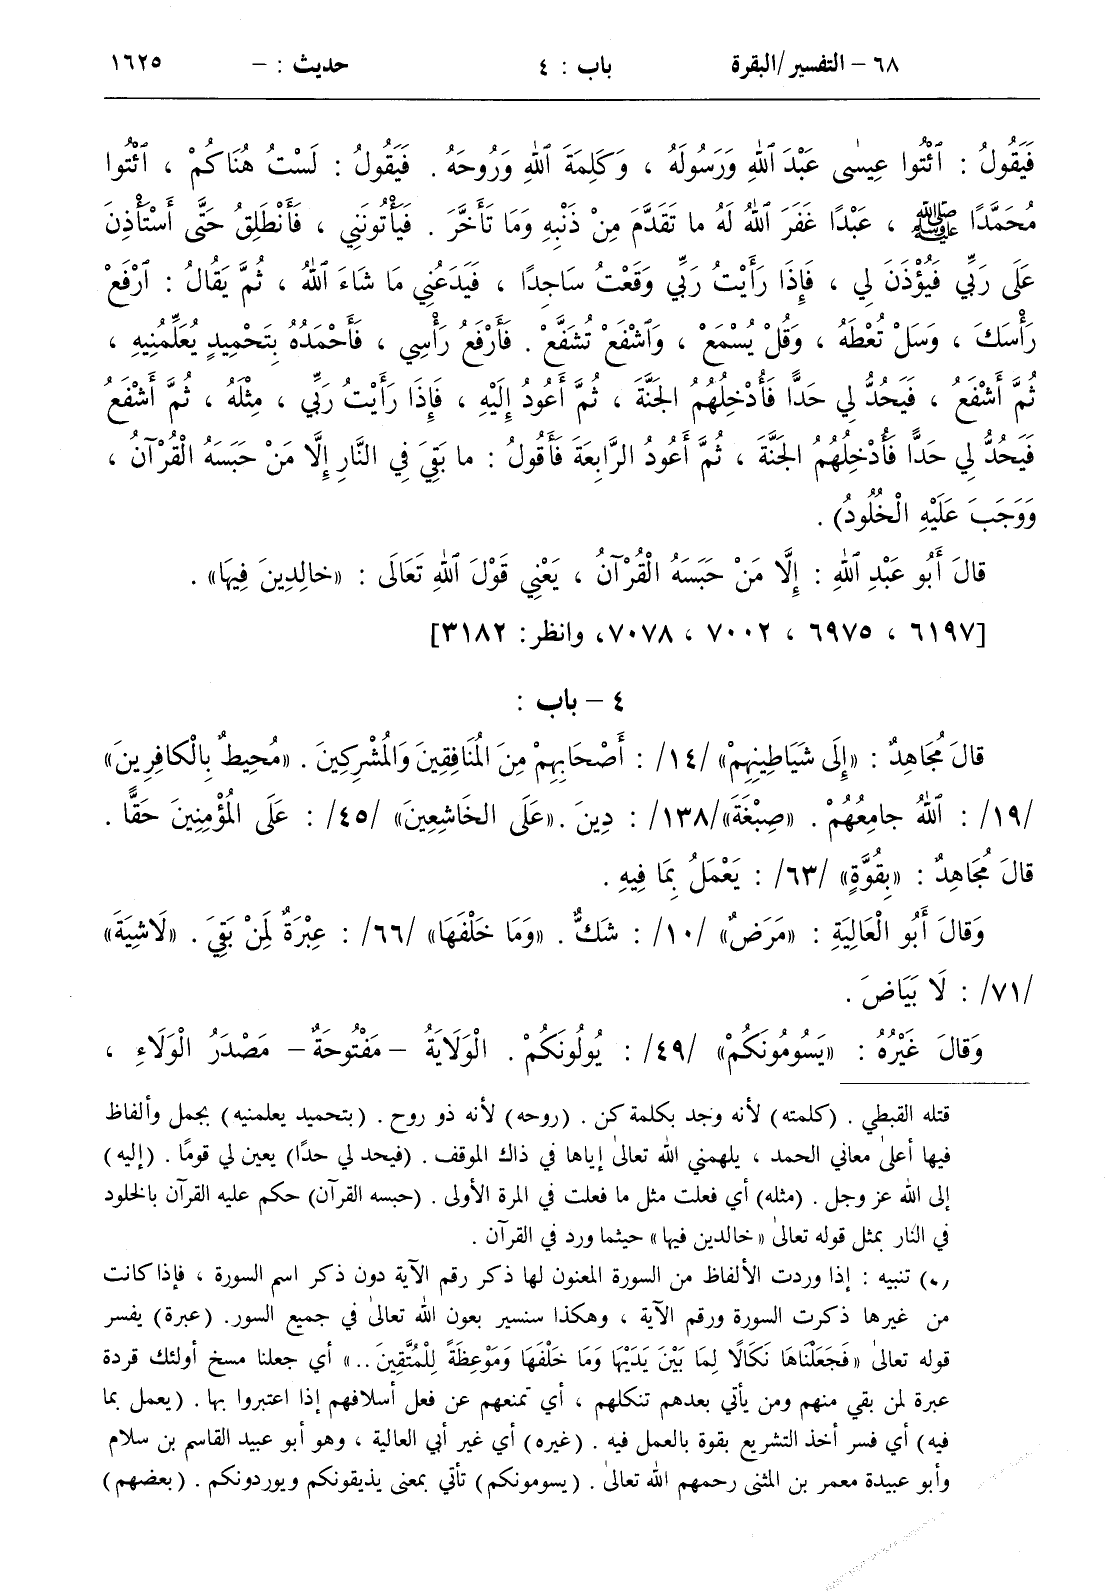 ٦٨ – التفسير/البقرة باب : ٤ حديث : – ١٦٢٥
فَيَقُولُ : ٱئْتُوا عِيسٰى عَبْدَ ٱللهِ وَرَسُولَهُ ، وَكَلِمَةَ ٱللهِ وَرُوحَهُ . فَيَقُولُ : لَسْتُ هُنَاكُمْ ، ٱئْتُوا
مُحَمَّدًا ﷺ ، عَبْدًا غَفَرَ ٱللهُ لَهُ ما تَقَدَّمَ مِنْ ذَنْبِهِ وَمَا تَأَخَّرَ . فَيَأْتُونَنِي ، فَأَنْطَلِقُ حَتَّى أَسْتَأْذِنَ
عَلَى رَبِّي فَيُؤْذَنَ لِي ، فَإِذَا رَأَيْتُ رَبِّي وَقَعْتُ سَاجِدًا ، فَيَدَعُنِي مَا شَاءَ ٱللهُ ، ثُمَّ يُقَالُ : ٱرْفَعْ
رَأْسَكَ ، وَسَلْ تُعْطَهُ ، وَقُلْ يُسْمَعْ ، وَٱشْفَعْ تُشَفَّعْ . فَأَرْفَعُ رَأْسِي ، فَأَحْمَدُهُ بِتَحْمِيدٍ يُعَلِّمُنِيهِ ،
ثُمَّ أَشْفَعُ ، فَيَحُدُّ لِي حَدًّا فَأُدْخِلُهُمُ الجَنَّةَ ، ثُمَّ أَعُودُ إِلَيْهِ ، فَإِذَا رَأَيْتُ رَبِّي ، مِثْلَهُ ، ثُمَّ أَشْفَعُ
فَيَحُدُّ لِي حَدًّا فَأُدْخِلُهُمُ الجَنَّةَ ، ثُمَّ أَعُودُ الرَّابِعَةَ فَأَقُولُ : ما بَقِيَ فِي النَّارِ إِلَّا مَنْ حَبَسَهُ الْقُرْآنُ ،
وَوَجَبَ عَلَيْهِ الْخُلُودُ) .
قالَ أَبُو عَبْدِ ٱللهِ : إِلَّا مَنْ حَبَسَهُ الْقُرْآنُ ، يَعْنِي قَوْلَ ٱللهِ تَعَالَى : «خالِدِينَ فِيهَا» .
[٦١٩٧ ، ٦٩٧٥ ، ٧٠٠٢ ، ٧٠٧٨، وانظر: ٣١٨٢]
٤ – باب :
قالَ مُجَاهِدٌ : «إِلَى شَيَاطِينِهِمْ» /١٤/ : أَصْحَابِهِمْ مِنَ المُنَافِقِينَ وَالمُشْرِكِينَ . «مُحِيطٌ بِالْكافِرِينَ»
/١٩/ : ٱللهُ جامِعُهُمْ . «صِبْغَةَ»/١٣٨/ : دِينَ .«عَلَى الخَاشِعِينَ» /٤٥/ : عَلَى المُؤْمِنِينَ حَقًّا .
قالَ مُجَاهِدٌ : «بِقُوَّةٍ» /٦٣/ : يَعْمَلُ بِمَا فِيهِ .
وَقالَ أَبُو الْعَالِيَةِ : «مَرَضٌ» /١٠/ : شَكٌّ . «وَمَا خَلْفَهَا» /٦٦/ : عِبْرَةٌ لِمَنْ بَقِيَ . «لَاشِيَةَ»
/٧١/ : لَا بَيَاضَ .
وَقالَ غَيْرُهُ : «يَسُومُونَكُمْ» /٤٩/ : يُولُونَكُمْ . الْوَلَايَةُ –مَفْتُوحَةٌ– مَصْدَرُ الْوَلَاءِ ،
قتله القبطي . (كلمته) لأنه وجد بكلمة كن . (روحه) لأنه ذو روح . (بتحميد يعلمنيه) بجمل وألفاظ
فيها أعلىٰ معاني الحمد ، يلهمني الله تعالىٰ إياها في ذاك الموقف . (فيحد لي حدًا) يعين لي قومًا . (إليه)
إلى الله عز وجل . (مثله) أي فعلت مثل ما فعلت في المرة الأولى . (حبسه القرآن) حكم عليه القرآن بالخلود
في النار بمثل قوله تعالىٰ «خالدين فيها» حيثما ورد في القرآن .
تنبيه : إذا وردت الألفاظ من السورة المعنون لها ذكر رقم الآية دون ذكر اسم السورة ، فإذا كانت
من غيرها ذكرت السورة ورقم الآية ، وهكذا سنسير بعون الله تعالىٰ في جميع السور. (عبرة) يفسر
قوله تعالىٰ «فَجَعَلْنَاهَا نَكَالًا لِمَا بَيْنَ يَدَيْهَا وَمَا خَلْفَهَا وَمَوْعِظَةً لِلْمُتَّقِينَ ..» أي جعلنا مسخ أولئك قردة
عبرة لمن بقي منهم ومن يأتي بعدهم تنكلهم ، أي تمنعهم عن فعل أسلافهم إذا اعتبروا بها . (يعمل بما
فيه) أي فسر أخذ التشريع بقوة بالعمل فيه . (غيره) أي غير أبي العالية ، وهو أبو عبيد القاسم بن سلام
وأبو عبيدة معمر بن المثنى رحمهم الله تعالىٰ . (يسومونكم) تأتي بمعنى يذيقونكم ويوردونكم . (بعضهم)